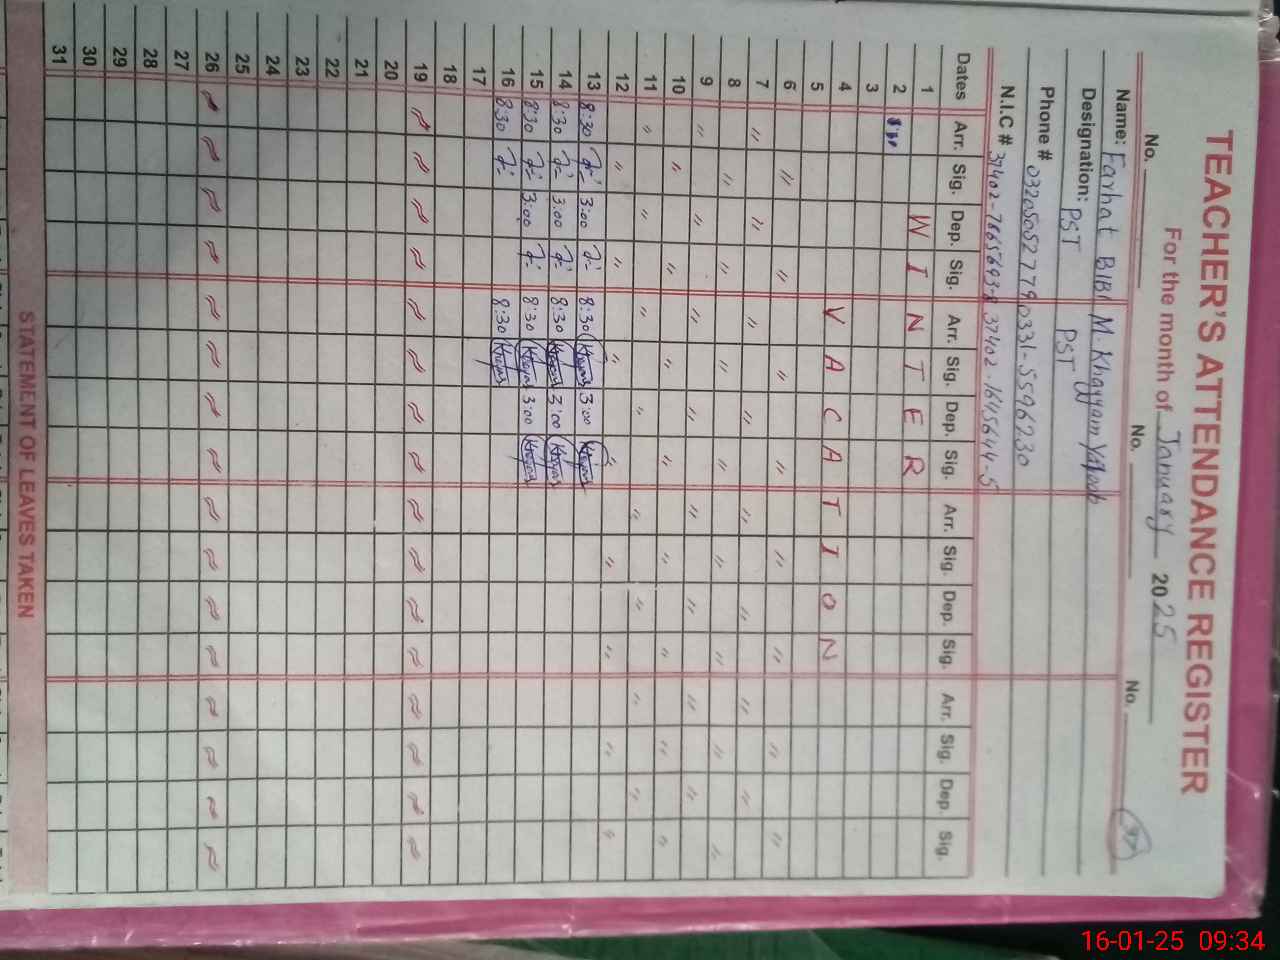 TEACHER'S ATTENDANCE REGISTER
For the month of January 2025
37
No. No. No.
Name: Farhat BIBI M. Khayyam Yaqoob
Designation: PST PST
Phone # 03205052779 0331-5596230
N.I.C # 37402-7865693-8 37402-1645644-5
Dates Arr. Sig. Dep. Sig. Arr. Sig. Dep. Sig. Arr. Sig. Dep. Sig. Arr. Sig. Dep. Sig.
1 W I N T E R
2
3
4 V A C A T I O N
5
6 〃 〃 〃 〃 〃 〃 〃
7 〃 〃 〃 〃 〃 〃 〃 〃
8 〃 〃 〃 〃 〃 〃 〃 〃
9 〃 〃 〃 〃 〃 〃 〃 〃
10 〃 〃 〃 〃 〃 〃 〃 〃
11 〃 〃 〃 〃 〃 〃 〃 〃
12 〃 〃 〃 〃 〃 〃 〃 〃
13 8:30 3:00 8:30 Khayyam 3:00 Khayyam
14 8:30 3:00 8:30 Khayyam 3:00 Khayyam
15 8:30 3:00 8:30 Khayyam 3:00 Khayyam
16 8:30 8:30 Khayyam
17
18
19
20
21
22
23
24
25
26
27
28
29
30
31
STATEMENT OF LEAVES TAKEN
16-01-25 09:34